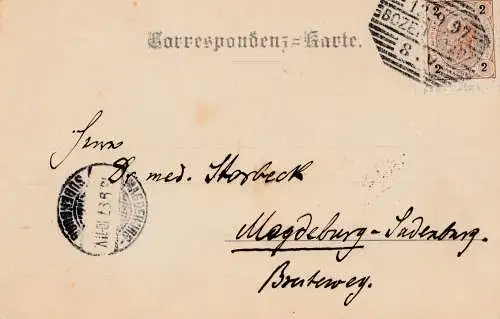 Correspondenz-Karte.
2
BOZEN
97
8
2
Herrn
Dr. med. Storbeck
Magdeburg-Sudenburg.
Breiteweg.
MAGDEBURG-
SUDENBURG